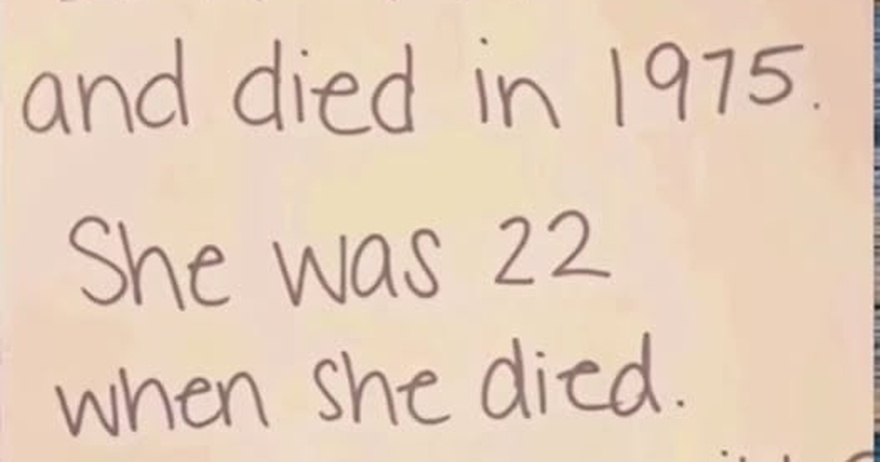 and died in 1975.
She was 22
when she died.